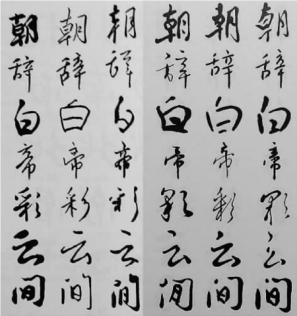 朝辞白帝彩云间
朝辞白帝彩云间
朝辞白帝彩云间
朝辞白帝彩云间
朝辞白帝彩云间
朝辞白帝彩云间